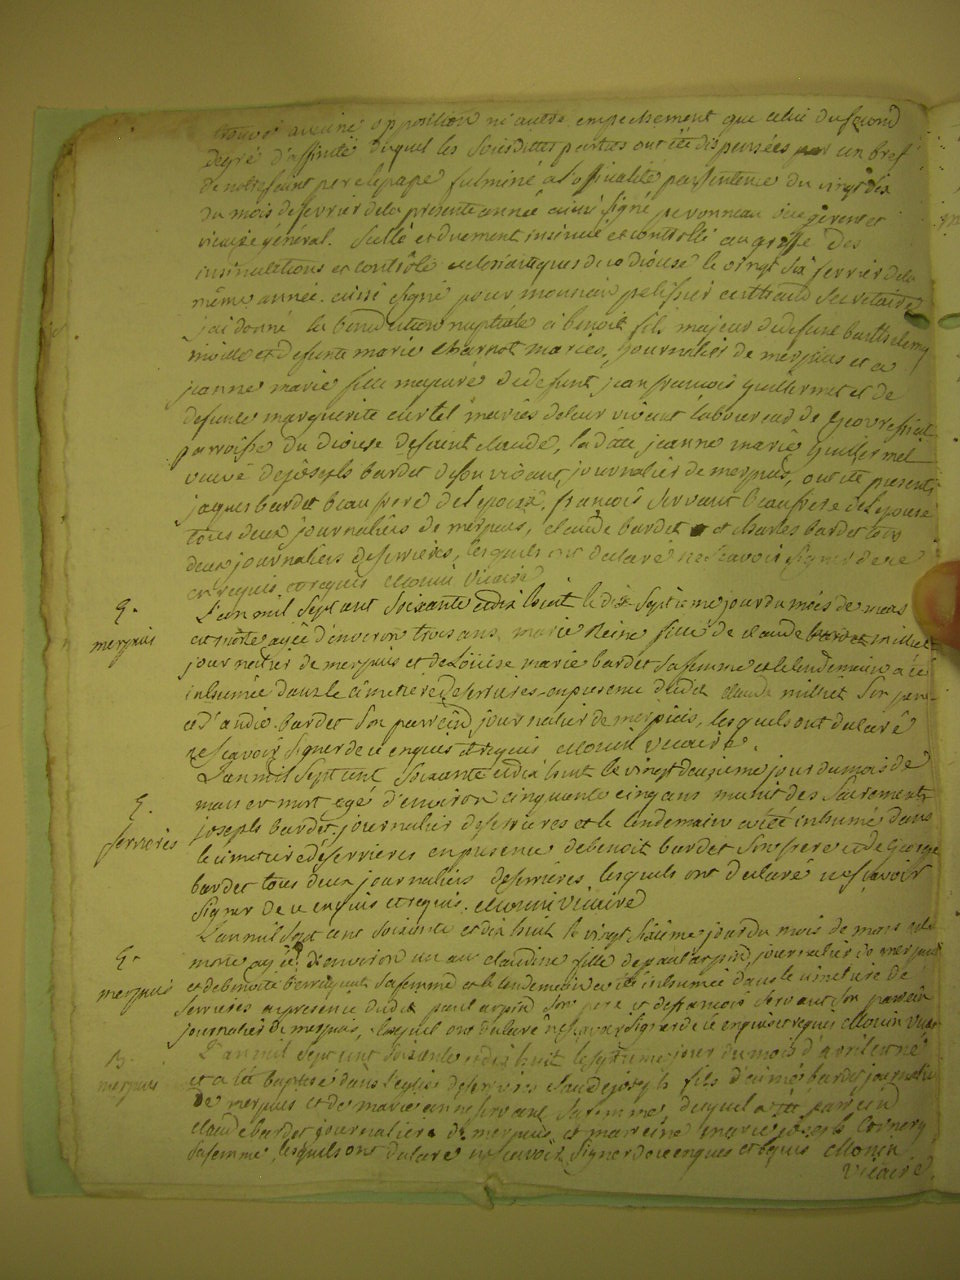 trouvé aucune opposition ni autre empeschement que celui du second
degré d'affinité duquel les susdittes parties ont été dispensées par un bref
de notre saint pere le pape fulminé a l'officialité par sentence du vingt dix
du mois de fevrier de la presente année ainsi signé peronneau vice gerent et
vicaire général. scellé et duement insinué et controllé au greffe des
insinuations et contrôle eclesiastiques de ce diocese le vingt six fevrier de la
même année. aussi signé pour monsieur pelissier certraud secretaire
j'ai donné la benediction nuptiale a benoit fils majeur de defunt barthelemy
et defunte marie charnot mariés, journalier de merpuis et a
jeanne marie fille majeure de defunt jean françois guillermet et de
defunte marguerite curtel mariés de leur vivant laboureurs de
parroisse du diocese de saint claude, la ditte jeanne marie guillermet
veuve de joseph bardet de son vivant, journalier de merpuis, ont été presents
jaques bardet beau frere de l'epouse, françois servant beaufrere de l'epouse
tous deux journaliers de merpuis, claude bardet et charles bardet tous
deux journaliers deserrieres, lesquels ont declaré ne scavoir signer de ce
enquis et requis Monin vicaire
E. L'an mil sept cent soixante et dix huit le dix septieme jour du mois de mars
merpuis est morte agée d'environ trois ans marie Reine fille de claude milliet
journalier de merpuis et de Loüise marie bardet sa femme et le lendemain a été
inhumée dans le cimetiere deserrieres en presence dudit claude milliet son pere
et d'andié bardet son parrein journalier de merpuis, lesquels ont declaré
ne scavoir signer de ce enquis et requis Monin vicaire.
L'an mil sept cent soixante et dix huit le vingt deuxieme jour du mois de
E. mars est mort agé d'environ cinquante cinq ans munit des sacrements
serrieres joseph bardet, journalier deserrieres et le lendemain a été inhumé dans
le cimetiere deserrieres en presence de benoit bardet son frere et de George
bardet tous deux journaliers deserrieres, lesquels ont declaré ne scavoir
signer de ce enquis et requis. Monin vicaire
L'an mil sept cent soixante et dix huit le vingt sixieme jour du mois de mars est
E. morte agée d'environ un an claudine fille de paul arpin, journalier de merpuis
merpuis et de benoite sa femme et le lendemain a été inhumée dans le cimetiere de
serrieres en presence dudit paul arpin son pere et de francois servant son parrain
journalier de merpuis, lesquels ont declaré ne scavoir signer de ce enquis et requis Monin vicaire
B. L'an mil sept cent soixante et dix huit le septieme jour du mois d'avril est né
merpuis et a été baptisé dans l'eglise deserrieres claude joseph fils d'aimé bardet journalier
de merpuis et de marie anne servant sa femme, duquel a été parrein
claude bardet journalier de merpuis et marreine marie joseph
sa femme, lesquels ont declaré ne scavoir signer de ce enquis et requis Monin
vicaire